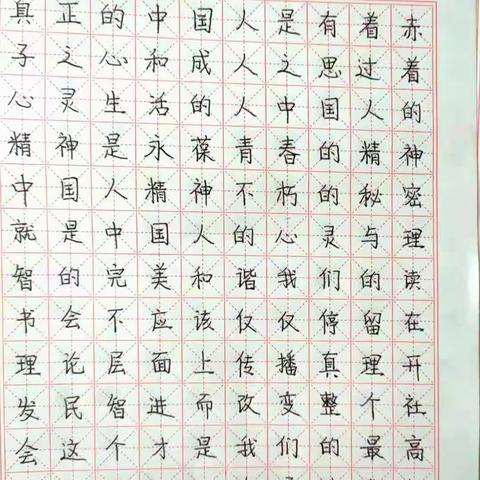 真正的中国人是有着赤
子之心和成人之思过着
心灵生活的人中国人的
精神是永葆青春的精神
中国人精神不朽的秘密
就是中国人的心灵与理
智的完美和谐我们的读
书会不应该仅仅停留在
理论层面上传播真理开
发民智进而改变整个社
会这个才是我们的最高